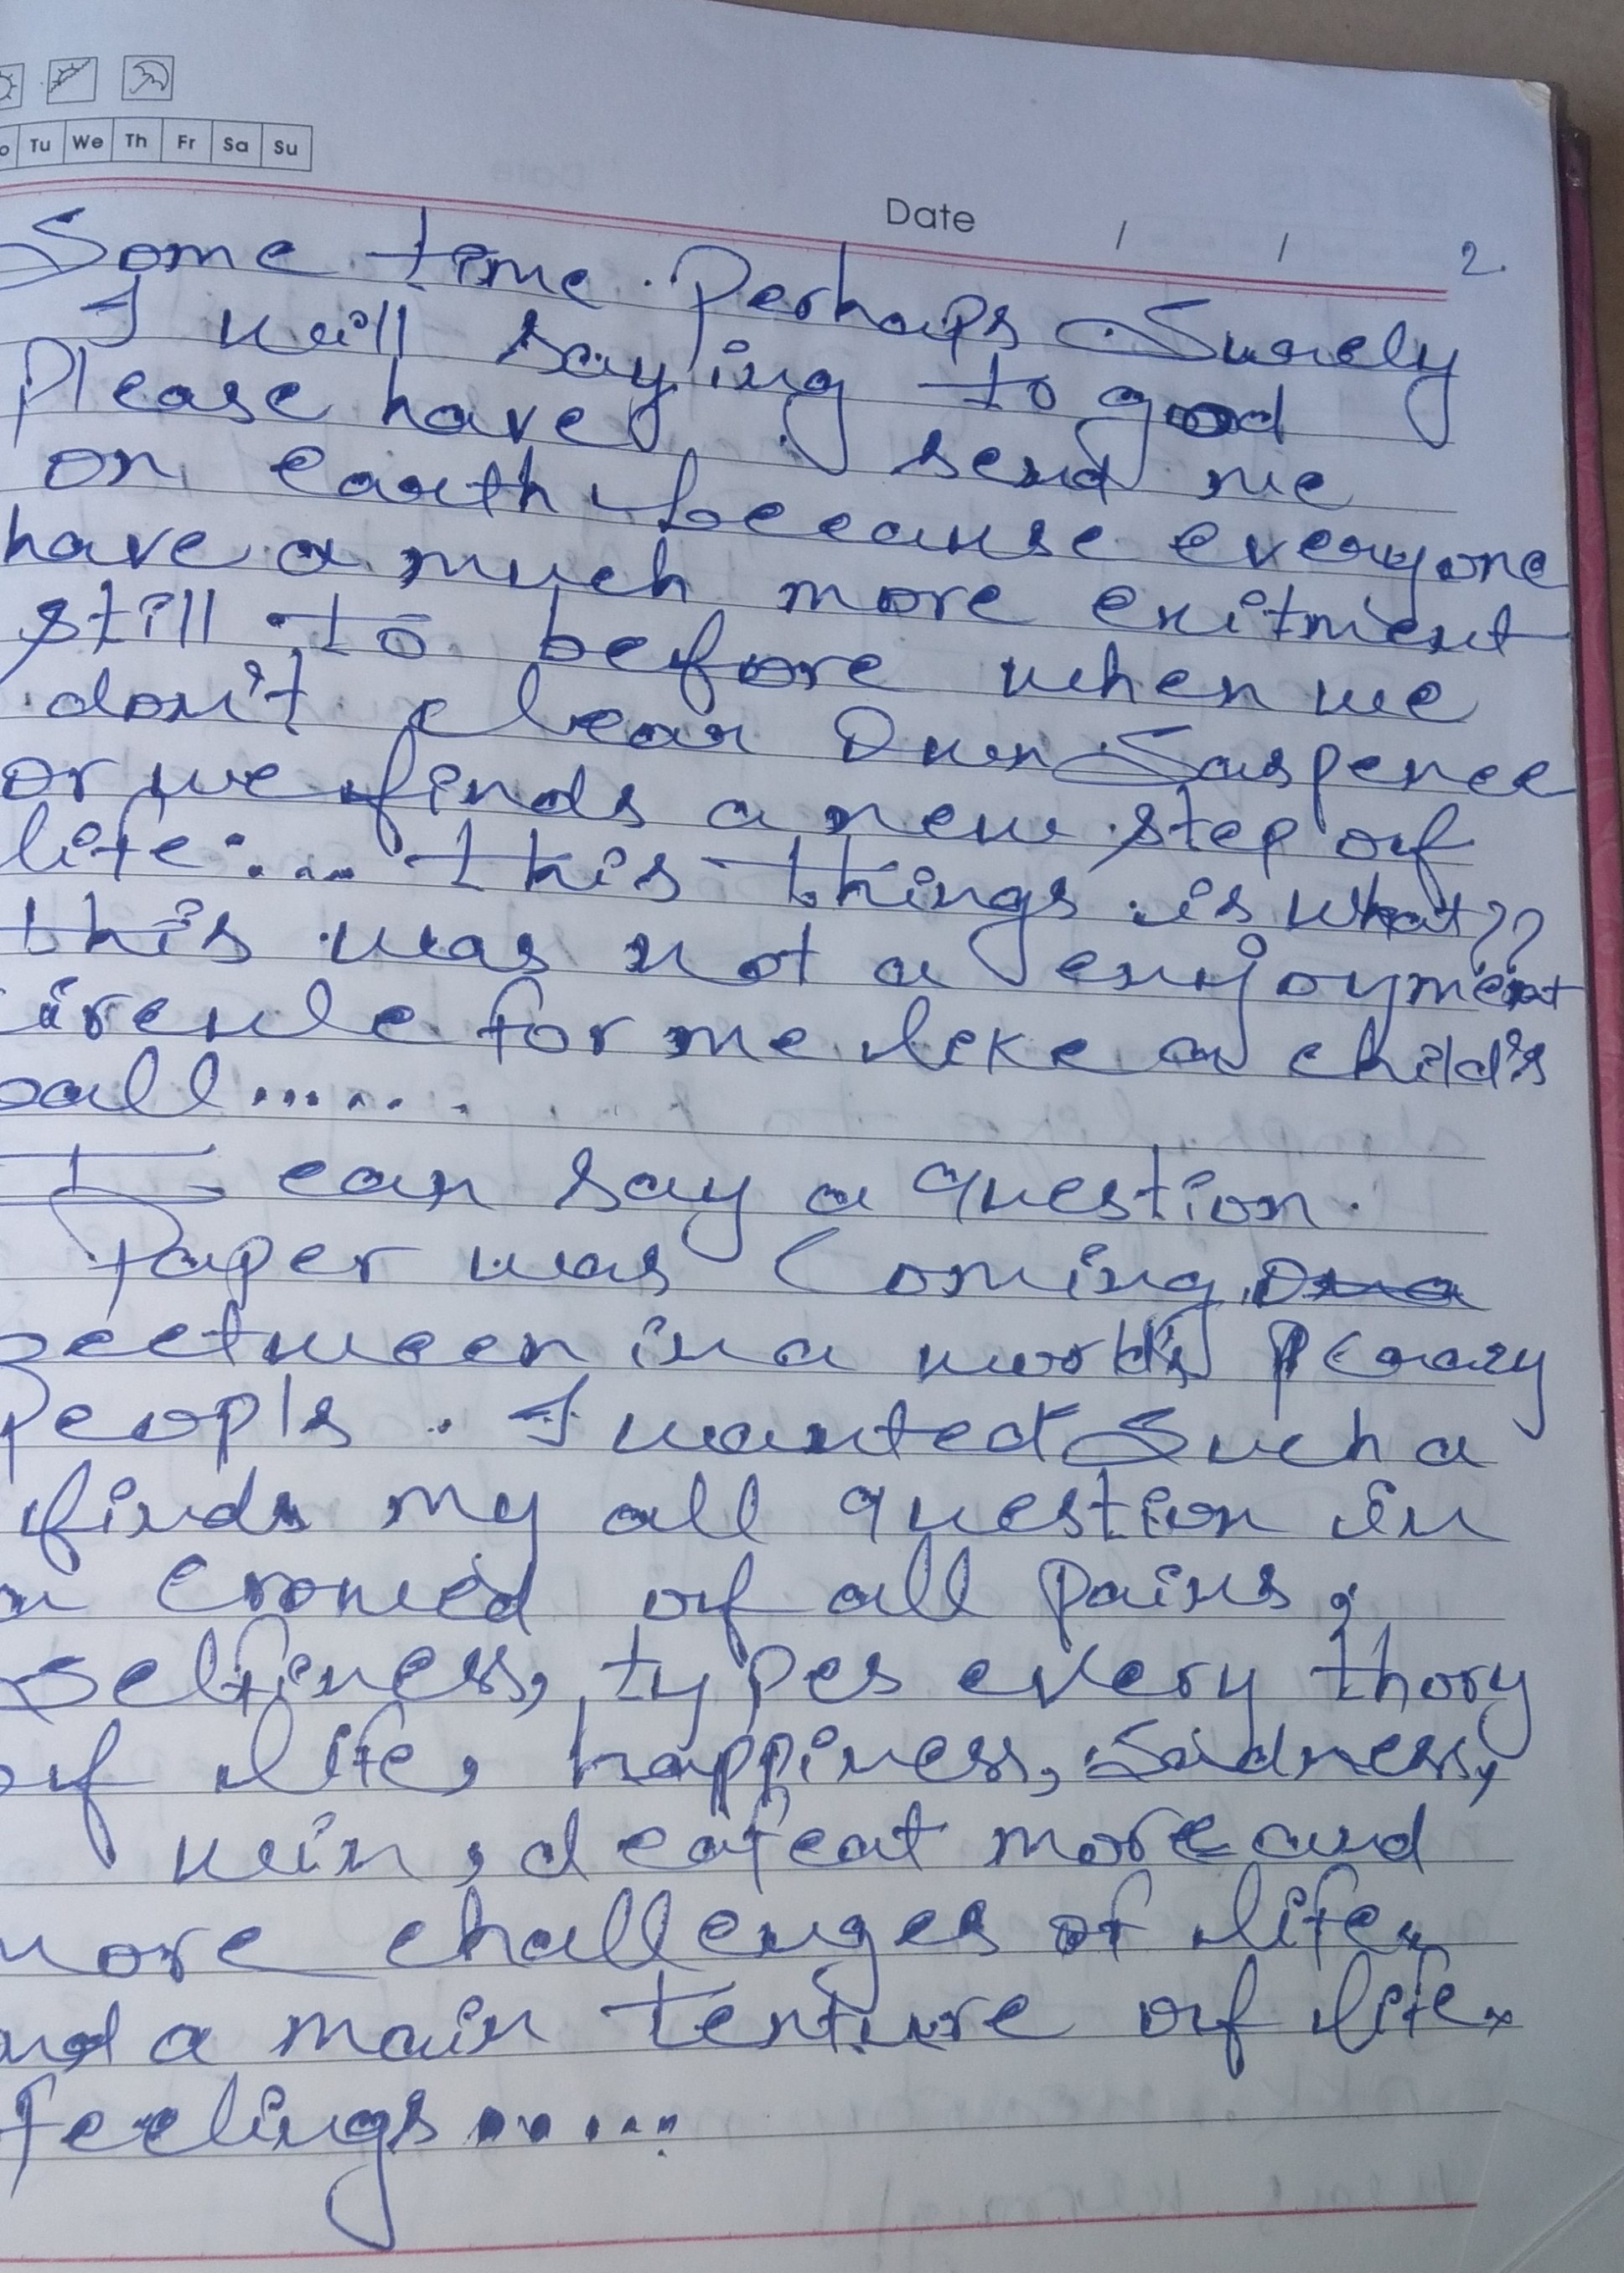 Tu We Th Fr Sa Su
Date / / 2.
Some time. Perhaps Surely
I will saying to good
Please have send me
on earth because everyone
have a much more exitment
still to before when we
don't clear Own Saspence
or we finds a new step of
life.... this things is what??
this was not a enjoyment
for me like a child's
ball......
I can say a question.
Paper was Coming
beetween in a world's Crazy
Peopls. I wanted Such a
finds my all question in
a crowed of all pains,
Selfiness, types every thory
of life, happiness, Sadness,
win, defeat more and
more challenges of life,
and a main texture of life.
feelings.....